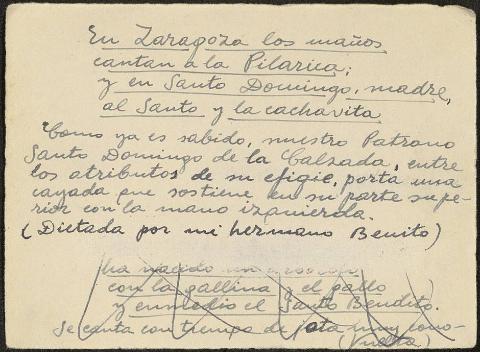 En Zaragoza los maños
cantan a la Pilarica;
y en Santo Domingo, madre,
al Santo y la cachavita.
Como ya es sabido, nuestro Patrono
Santo Domingo de la Calzada, entre
los atributos de su efigie, porta una
cayada que sostiene en su parte supe-
rior con la mano izquierda.
(Dictada por mi hermano Benito)
ha nacido un
con la gallina y el gallo
y enmedio el Santo Bendito.
Se canta con tiempo de jota muy cono-
(Vuelta)